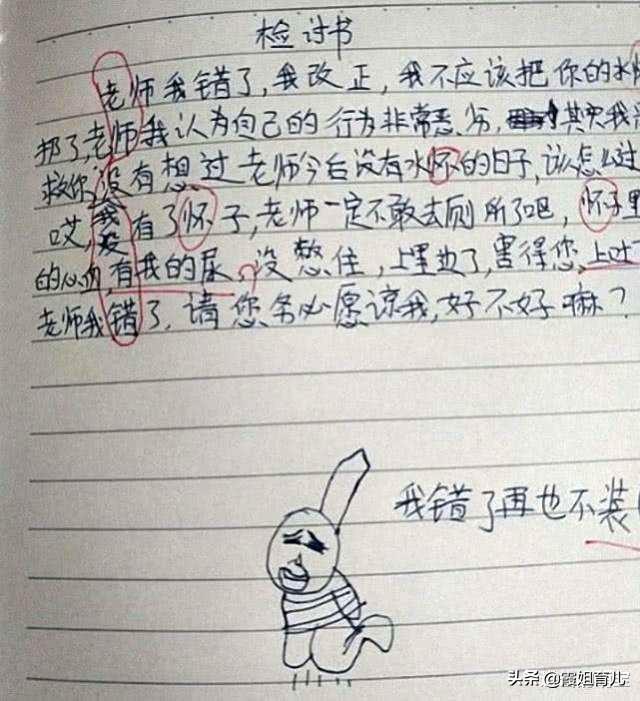 检讨书
老师我错了,我改正,我不应该把你的水
了,老师我认为自己的行为非常恶劣,其实我
救你,没有想过老师今后没有水怀的日子,该怎么过
哎,我没有了怀子,老师一定不敢去厕所了吧,怀子里
的心血,有我的尿。没憋住,上里边了,害得您,上吐
老师我错了,请您务必愿谅我,好不好嘛?
我错了再也不装
头条 @霞姐育儿